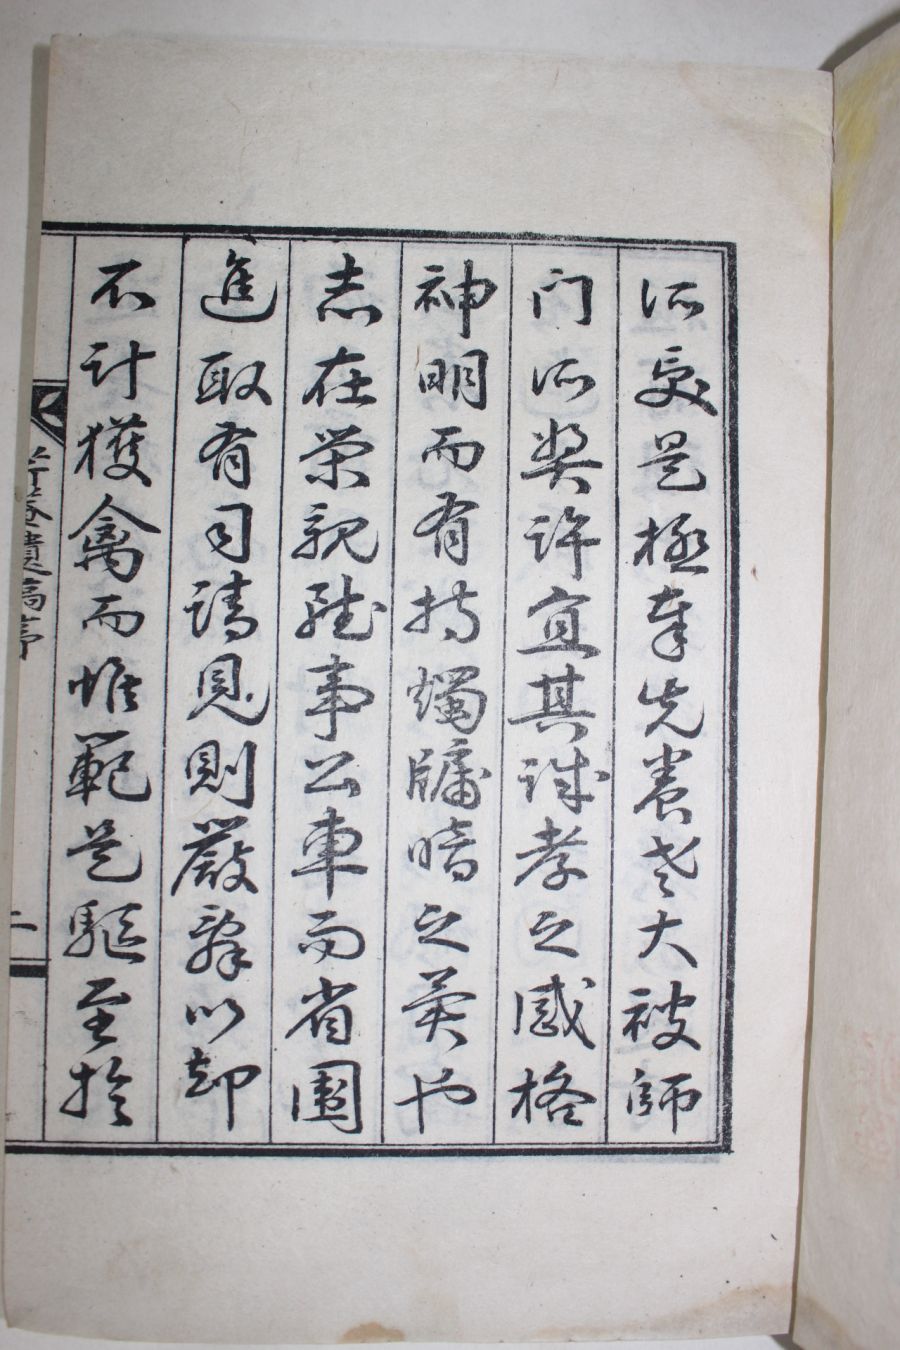 所處是極奉先養老大被師
门所奖許宜其誠孝之感格
神明而有持燭牖暗之異也
志在荣親雖事公車而省圍
進取有司請見則嚴辞以却
不計獲禽而惟範是驅至於
遺稿序
二